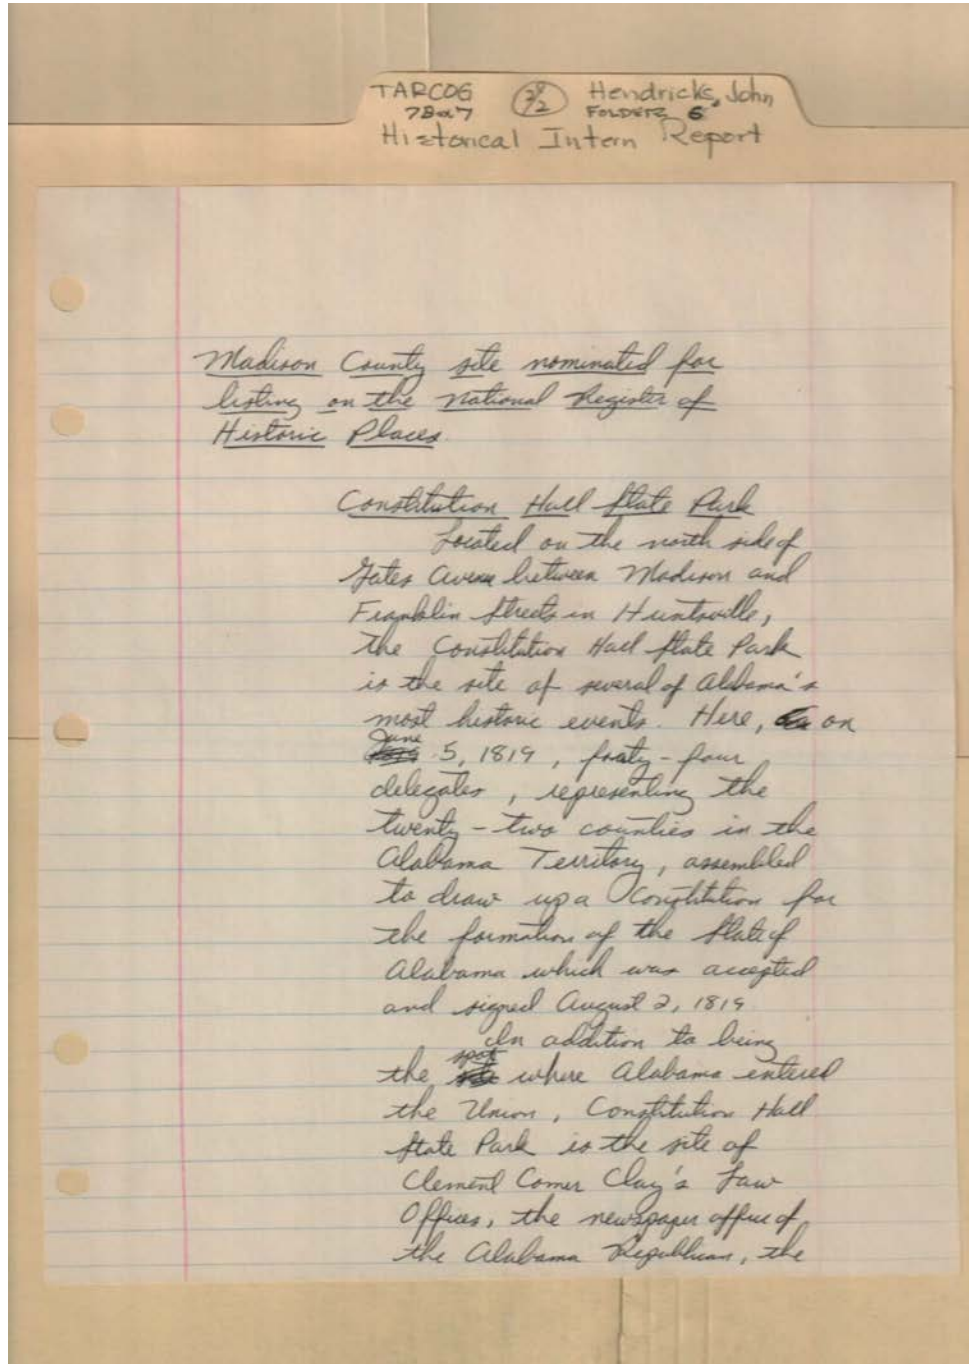 TARCOG Hendricks, John
FOLDER 6
Historical Intern Report
Madison County site nominated for
listing on the National Register of
Historic Places.
Constitution Hall State Park
Located on the north side of
Gates Avenue between Madison and
Franklin Streets in Huntsville,
the Constitution Hall State Park
is the site of several of Alabama's
most historic events. Here, on
June 5, 1819, forty-four
delegates, representing the
twenty-two counties in the
Alabama Territory, assembled
to draw up a Constitution for
the formation of the State of
Alabama which was accepted
and signed August 2, 1819
In addition to being
the spot where Alabama entered
the Union, Constitution Hall
State Park is the site of
Clement Comer Clay's Law
Offices, the newspaper office of
the Alabama Republican, the